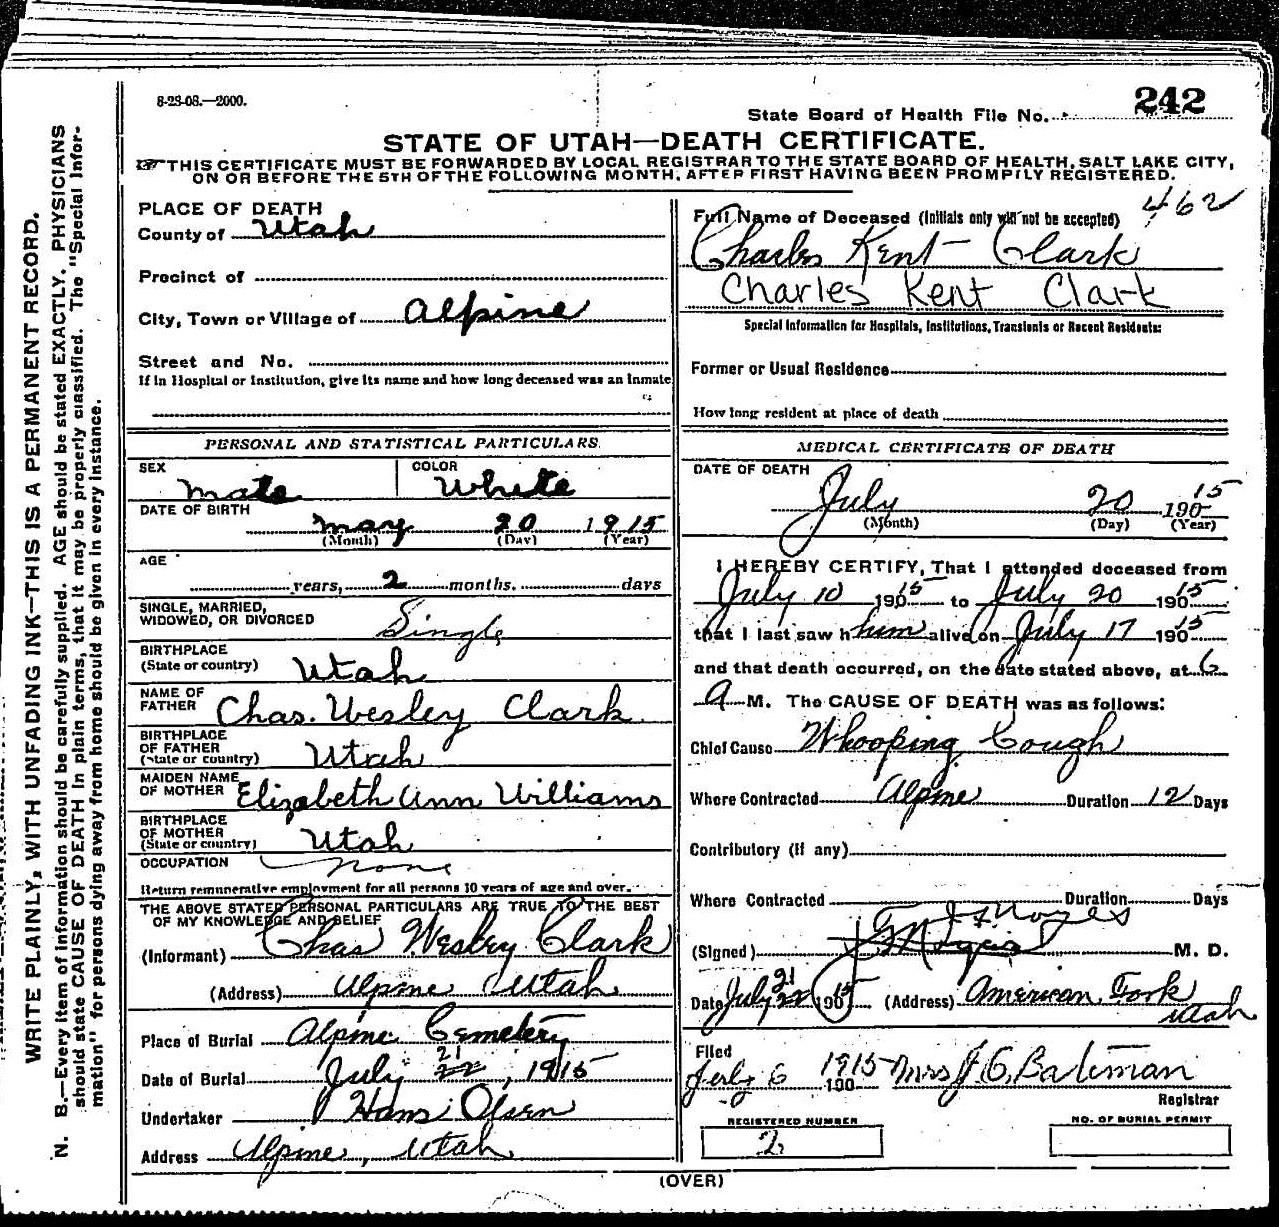 8-23-08.—2000.
242
State Board of Health File No.
STATE OF UTAH—DEATH CERTIFICATE.
THIS CERTIFICATE MUST BE FORWARDED BY LOCAL REGISTRAR TO THE STATE BOARD OF HEALTH, SALT LAKE CITY,
ON OR BEFORE THE 5TH OF THE FOLLOWING MONTH, AFTER FIRST HAVING BEEN PROMPTLY REGISTERED.
WRITE PLAINLY, WITH UNFADING INK—THIS IS A PERMANENT RECORD.
N. B.—Every item of information should be carefully supplied. AGE should be stated EXACTLY. PHYSICIANS
should state CAUSE OF DEATH in plain terms, that it may be properly classified. The "Special Infor-
mation" for persons dying away from home should be given in every instance.
PLACE OF DEATH
County of Utah
Precinct of
City, Town or Village of Alpine
Street and No.
If in Hospital or Institution, give its name and how long deceased was an inmate
PERSONAL AND STATISTICAL PARTICULARS.
SEX Male COLOR White
DATE OF BIRTH
May 20 1915
(Month) (Day) (Year)
AGE
years, 2 months. days
SINGLE, MARRIED,
WIDOWED, OR DIVORCED Single
BIRTHPLACE
(State or country) Utah
NAME OF
FATHER Chas. Wesley Clark
BIRTHPLACE
OF FATHER
(State or country) Utah
MAIDEN NAME
OF MOTHER Elizabeth Ann Williams
BIRTHPLACE
OF MOTHER
(State or country) Utah
OCCUPATION None
Return remunerative employment for all persons 10 years of age and over.
THE ABOVE STATED PERSONAL PARTICULARS ARE TRUE TO THE BEST
OF MY KNOWLEDGE AND BELIEF
(Informant) Chas Wesley Clark
(Address) Alpine Utah
Place of Burial Alpine Cemetery
Date of Burial July 21 22, 1915
Undertaker Hans Olsen
Address Alpine, Utah
462
Full Name of Deceased (Initials only will not be accepted)
Charles Kent Clark
Charles Kent Clark
Special Information for Hospitals, Institutions, Transients or Recent Residents:
Former or Usual Residence
How long resident at place of death
MEDICAL CERTIFICATE OF DEATH
DATE OF DEATH
July 20 190 15
(Month) (Day) (Year)
I HEREBY CERTIFY, That I attended deceased from
July 10 190 15 to July 20 190 15
that I last saw h him alive on July 17 190 15
and that death occurred, on the date stated above, at 6
A M. The CAUSE OF DEATH was as follows:
Chief Cause Whooping Cough
Where Contracted Alpine Duration 12 Days
Contributory (if any)
Where Contracted Duration Days
(Signed) Noyes M. D.
Date July 21 22 190 15 (Address) American Fork
Utah
Filed
July 6 1915 190 Mrs J. G. Bateman
Registrar
REGISTERED NUMBER
2
NO. OF BURIAL PERMIT
(OVER)